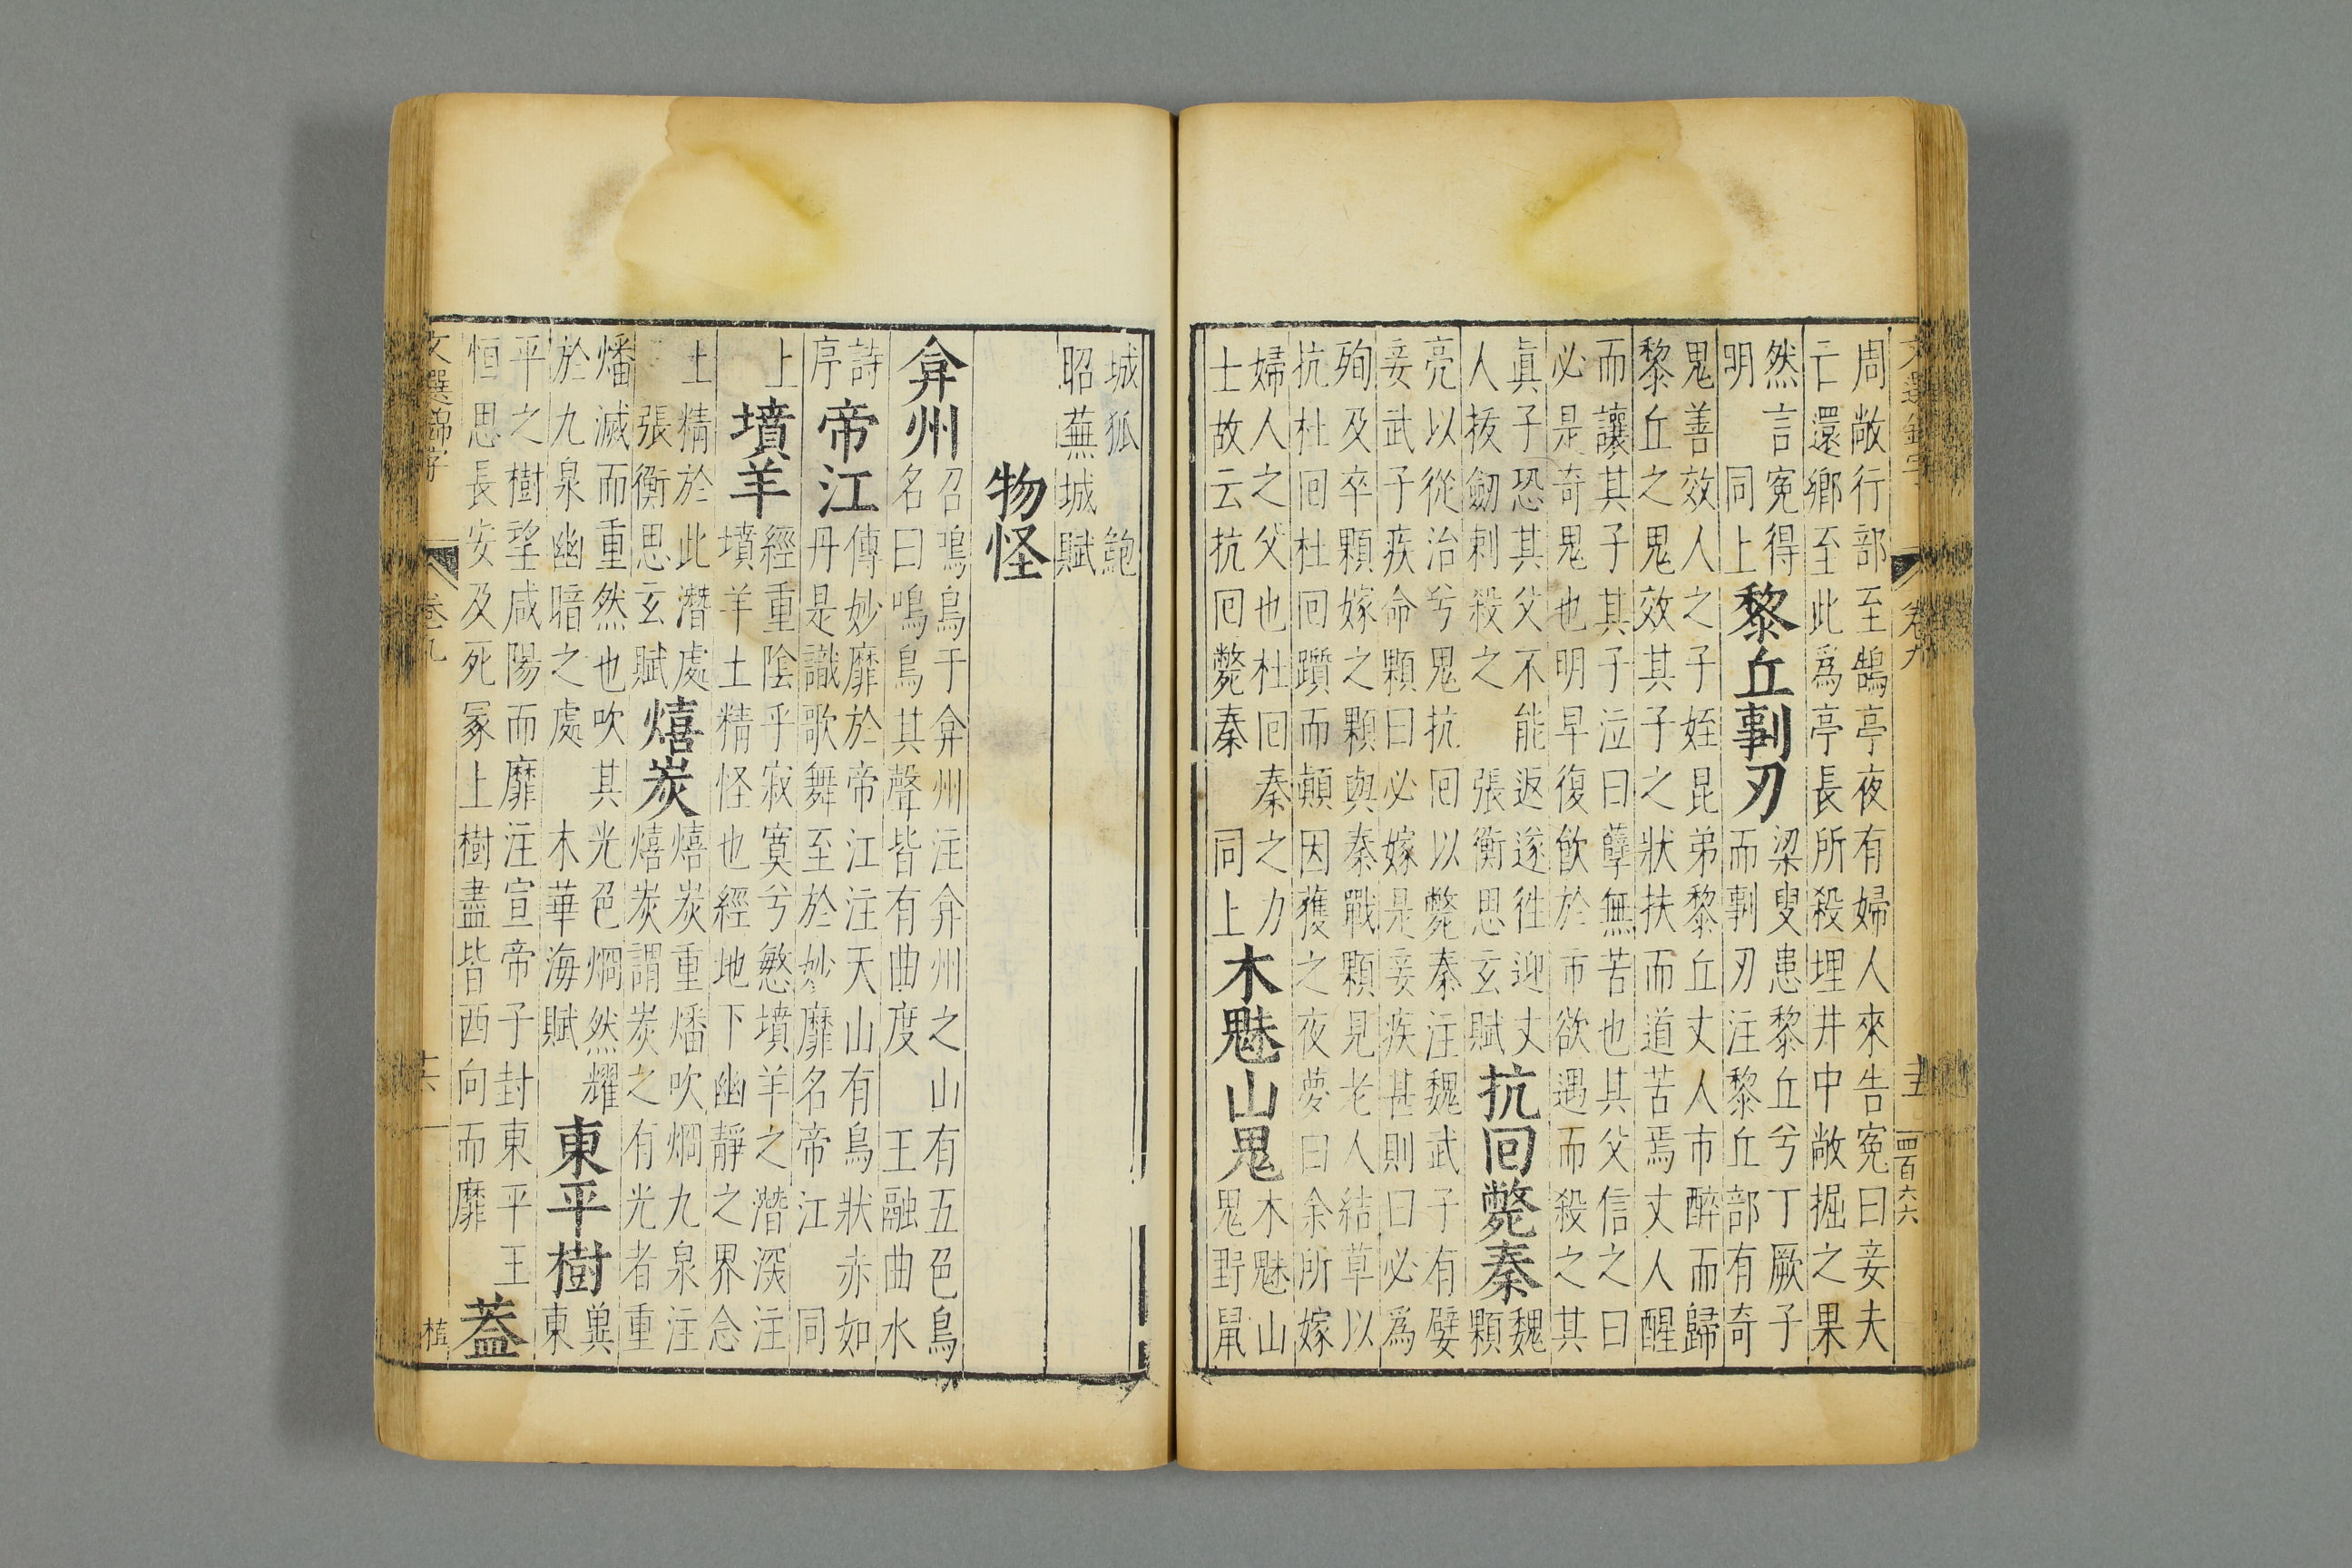 周敞行部至鵠亭夜有婦人來告寃曰妾夫
亡還鄉至此爲亭長所殺埋井中敞掘之果
然言寃得
明　同上
黎丘剚刃
梁叟患黎丘兮丁厥子
而剚刃注黎丘部有奇
鬼善效人之子姪昆弟黎丘丈人市醉而歸
黎丘之鬼效其子之狀扶而道苦焉丈人醒
而讓其子其子泣曰孽無苦也其父信之曰
必是奇鬼也明早復飲於市欲遇而殺之其
眞子恐其父不能返遂徃迎丈
人拔劒刺殺之　張衡思玄賦
抗回斃秦
魏
顆
亮以從治兮鬼抗回以斃秦注魏武子有嬖
妾武子疾命顆曰必嫁是妾疾甚則曰必爲
殉及卒顆嫁之顆與秦戰顆見老人結草以
抗杜回杜回躓而顛因獲之夜夢曰余所嫁
婦人之父也杜回秦之力
士故云抗回斃秦　同上
木魅山鬼
木魅山
鬼野鼠
文選錦字
卷九
十五
四百六六
城狐　鮑
昭蕪城賦
物怪
弇州
召鳴鳥于弇州注弇州之山有五色鳥
名曰鳴鳥其聲皆有曲度　王融曲水
詩
序
帝江
傳妙靡於帝江注天山有鳥狀赤如
丹是識歌舞至於妙靡名帝江　同
上
墳羊
經重陰乎寂寞兮愍墳羊之潛深注
墳羊土精怪也經地下幽靜之界念
土精於此潛處
張衡思玄賦
熺炭
熺炭重燔吹烱九泉注
熺炭謂炭之有光者重
燔滅而重然也吹其光色烱然耀
於九泉幽暗之處　木華海賦
東平樹
兾
東
平之樹望咸陽而靡注宣帝子封東平王
恒思長安及死冢上樹盡皆西向而靡
葢
文選錦字
卷九
十六
植